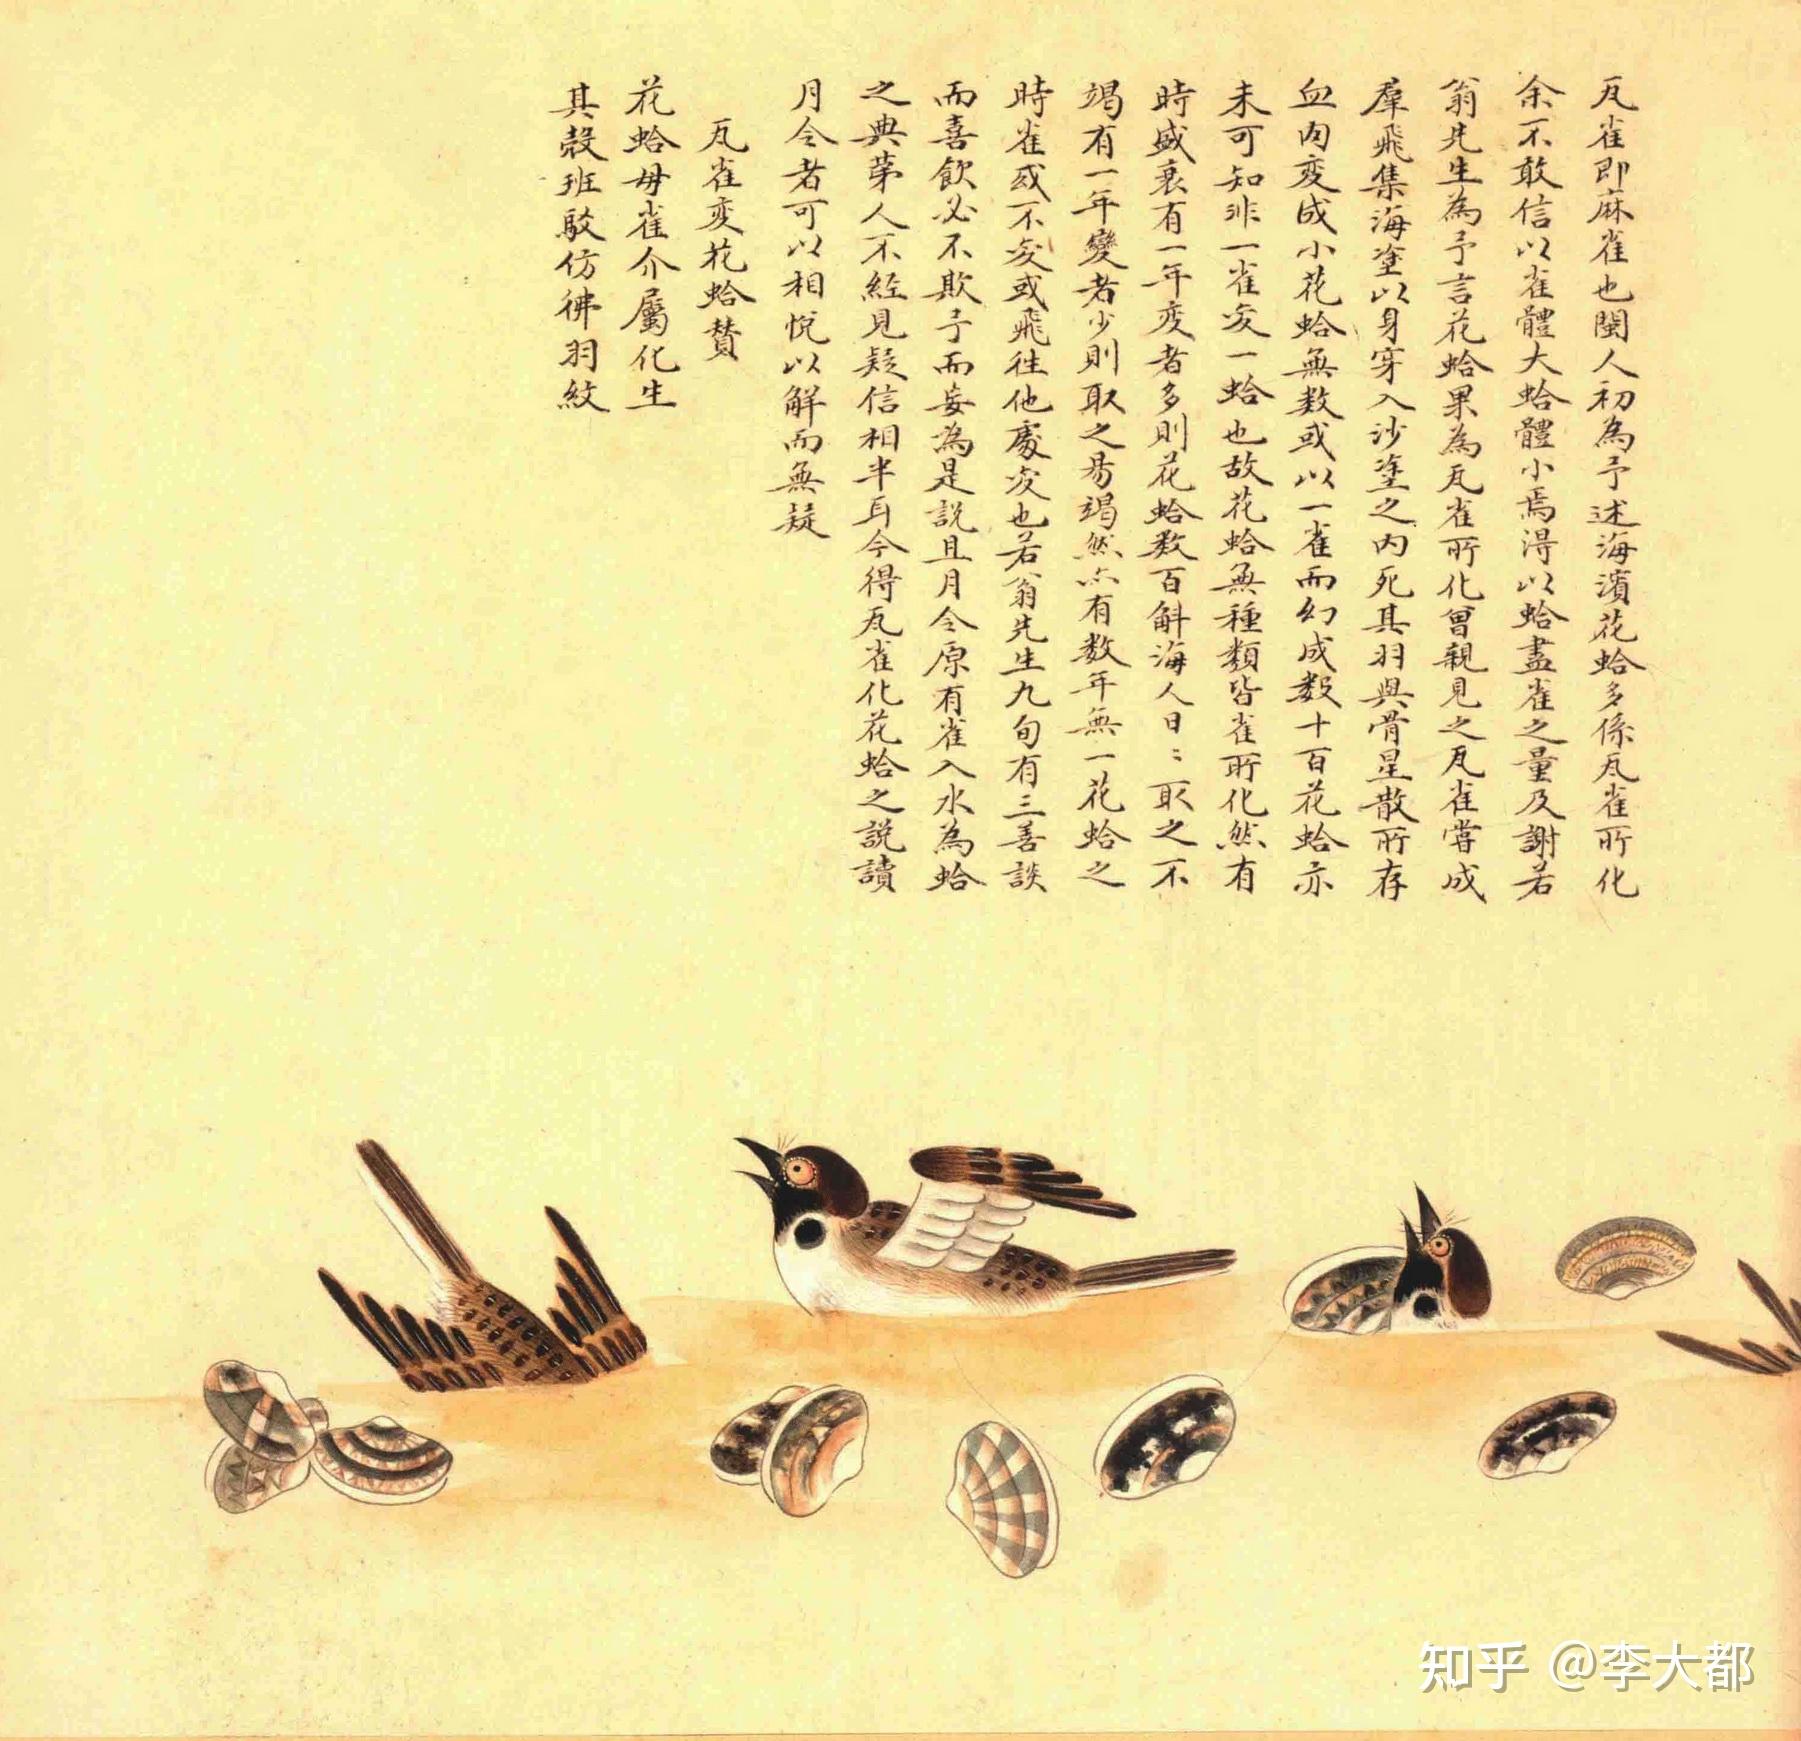 瓦雀即麻雀也閩人初為予述海濱花蛤多係瓦雀所化
余不敢信以雀體大蛤體小焉得以蛤盡雀之量及謝若
翁先生為予言花蛤果為瓦雀所化曾親見之瓦雀嘗成
羣飛集海塗以身穿入沙塗之內死其羽與骨星散所存
血肉变成小花蛤無数或以一雀而幻成数十百花蛤亦
未可知非一雀变一蛤也故花蛤無種類皆雀所化然有
時盛衰有一年变者多則花蛤数百斛海人日〻取之不
竭有一年變者少則取之易竭然亦有数年無一花蛤之
時雀或不变或飛往他處变也若翁先生九旬有三善談
而喜飲必不欺予而妄為是説且月令原有雀入水為蛤
之典苐人不經見疑信相半耳今得瓦雀化花蛤之説讀
月令者可以相悅以解而無疑
瓦雀变花蛤賛
花蛤母雀介屬化生
其殼班駁仿彿羽紋
知乎 @李大都